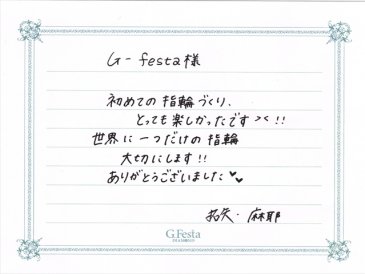 G-festa様
初めての指輪づくり、
とっても楽しかったです>く!!
世界に一つだけの指輪
大切にします!!
ありがとうございました
拓矢・麻耶
G.Festa